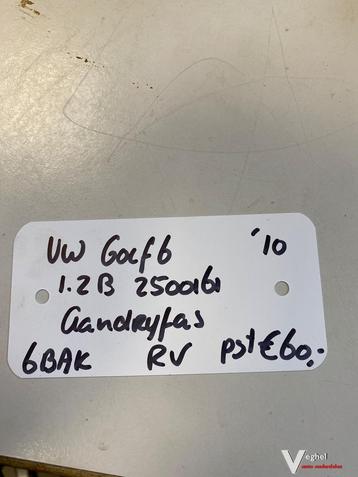 VW Golf 6 '10
1.2B 2500161
Aandryfas
6BAK RV pst €60,-
Veghel